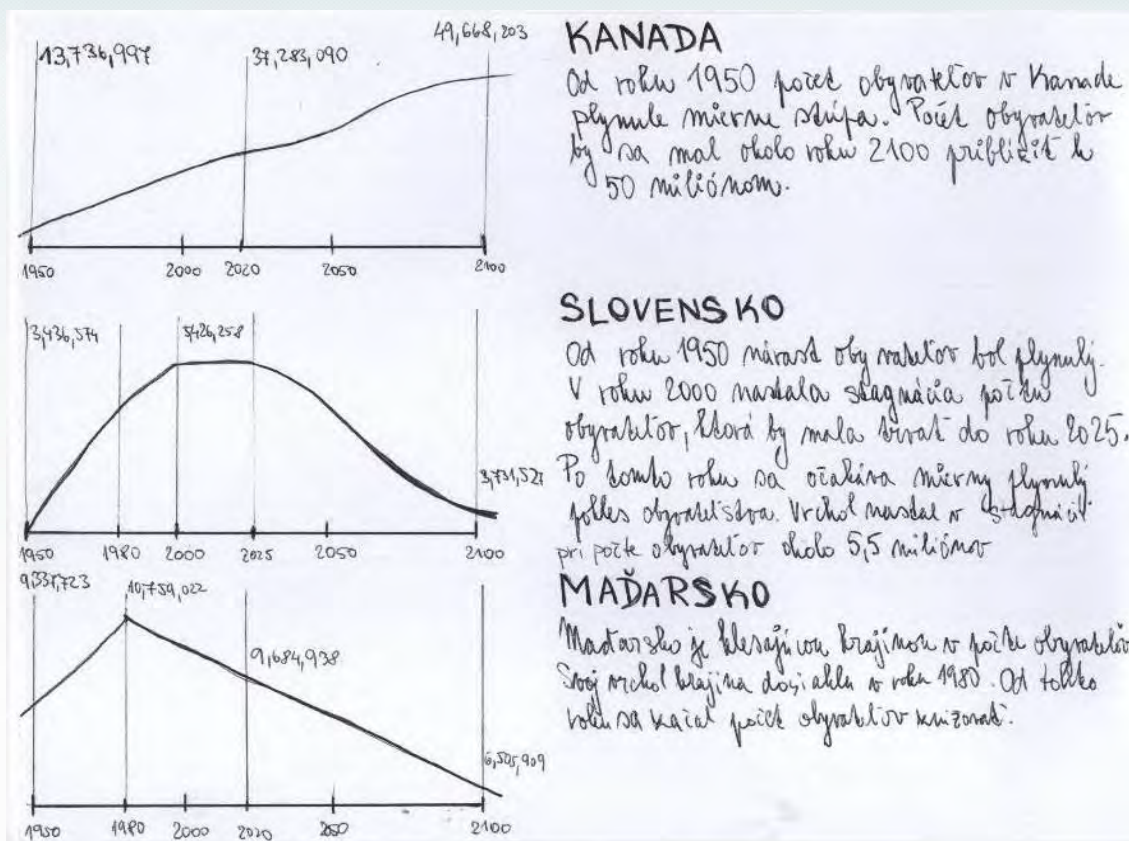 13,736,997
37,283,090
49,668,203
1950 2000 2020 2050 2100
KANADA
Od roku 1950 počet obyvateľov v Kanade
plynule mierne stúpa. Počet obyvateľov
by sa mal okolo roku 2100 priblížiť k
50 miliónom.
3,436,574
5,426,258
3,731,527
1950 1980 2000 2025 2050 2100
SLOVENSKO
Od roku 1950 nárast obyvateľov bol plynulý.
V roku 2000 nastala stagnácia počtu
obyvateľov, ktorá by mala trvať do roku 2025.
Po tomto roku sa očakáva mierny plynulý
pokles obyvateľstva. Vrchol nastal v stagnácií
pri počte obyvateľov okolo 5,5 miliónov
9,337,723
10,759,022
9,684,938
6,505,909
1950 1980 2000 2020 2050 2100
MAĎARSKO
Maďarsko je klesajúcou krajinou v počte obyvateľov
Svoj vrchol krajina dosiahla v roku 1980. Od tohto
roku sa začal počet obyvateľov znižovať.